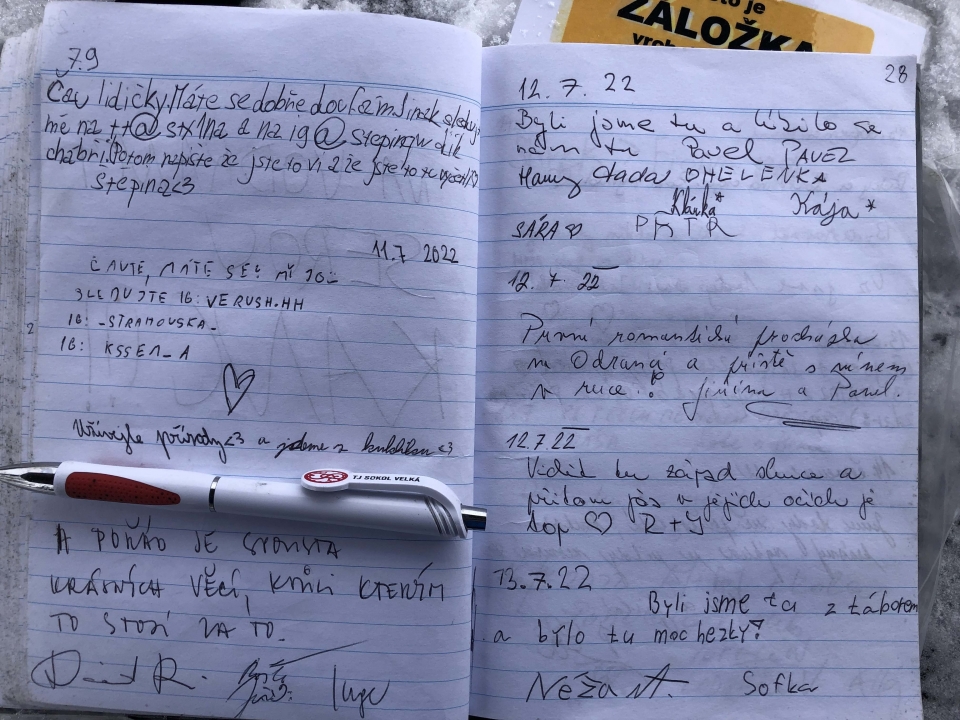 7.9
Čau lidičky. Máte se dobře doufám. Jinak sleduj
mé na tt@ stx1na a na ig@ stepinqw dík
chábři. Potom napište že jste to vi a že jste to tu
stepina<3
11.7 2022
ČAUTE, MÁTE SE? MÍ JO
SLEDUJTE IG: VERUSH.HH
IG: -STRAHOVSKA-
IG: KSSEN_A
Užívejte přírody<3 a jdeme z <3
TJ SOKOL VELKÁ
A POŘÁD JE SPOUSTA
KRÁSNÝCH VĚCÍ, KVŮLI KTERÝM
TO STOJÍ ZA TO.
David R.
to je
ZÁLOŽKA
28
12. 7. 22
Byli jsme tu a líbilo se
nám tu Pavel PAVEZ
Hanny dada OHELENKA
Klárka* Kája*
SÁRA PETR
12. 7. 22
První romantická procházka
na Odranci a příště s vínem
v ruce. Jiřina a Pavel.
12.7 22
Vidět tu západ slunce a
přitom jas v jejích očích je
top ♡ R+Y
13.7.22
Byli jsme tu z táborem
a bylo tu moc hezky?
Sofka